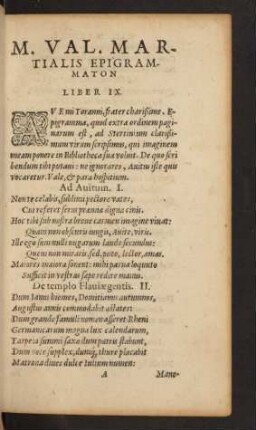 M. VAL. MAR-
TIALIS EPIGRAM-
MATON
LIBER IX.
AVE mi Toranni, frater charissime. E-
pigramma, quod extra ordinem pagi-
narum est, ad Stertinium clarissi-
mum virum scripsimus, qui imaginem
meam ponere in Bibliotheca sua voluit. De quo scri
bendum tibi putaui: ne ignorares, Auitus iste quis
vocaretur. Vale, & para hospitium.
Ad Auitum. I.
Note licet nolis, sublimi pectore vates,
Cui referet serus præmia digna cinis.
Hoc tibi sub nostra breue carmen imagine viuat:
Quam non obscuris iungis, Auite, viris.
Ille ego sum nulli nugarum laude secundus:
Quem non miraris sed, puto, lector, amas.
Maiores maiora sonent: mihi parua loquuto
Sufficit in vestras sæpe redire manus.
De templo Flauiæ gentis. II.
Dum Ianus hiemes, Domitianus autumnos,
Augustus annis commodabit æstates:
Dum grande famuli nomen asseret Rheni
Germanicarum magna lux calendarum,
Tarpeia summi saxa dum patris stabunt,
Dum voce supplex, dumq; thure placabit
Matrona diuæ dulce Iuliæ numen:
A Mane-